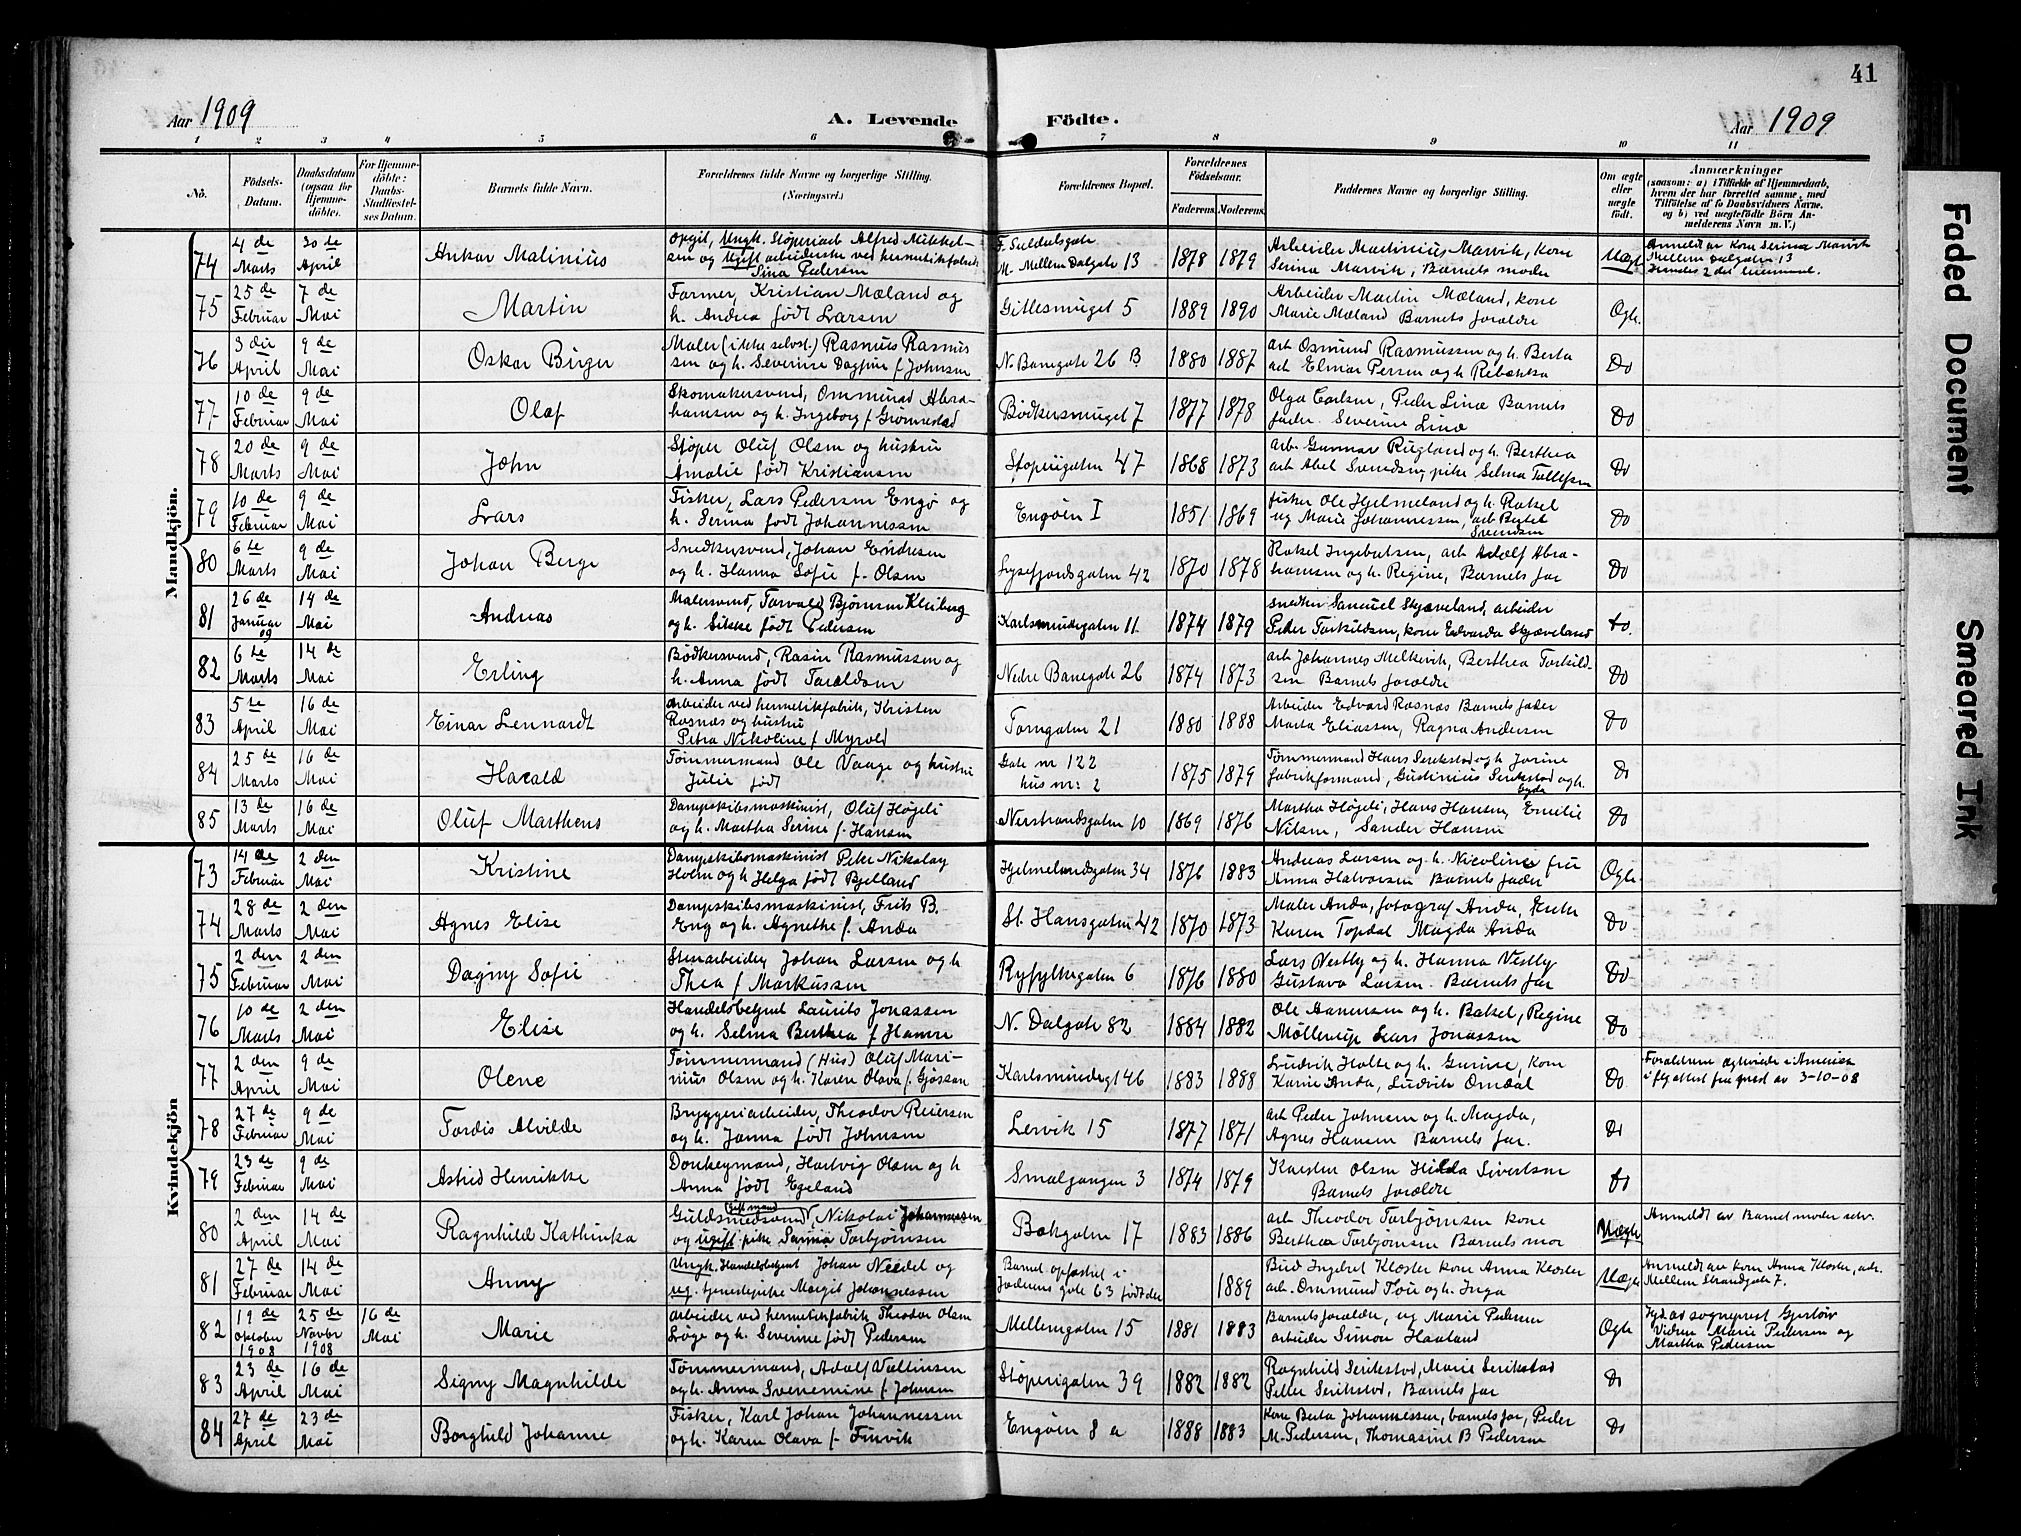 41
Aar 1909
A. Levende Födte.
Aar 1909
1 2 3 4 5 6 7 8 9 10 11
No.
Födsels-Datum.
Daabsdatum (ogsaa for Hjemme-döbte).
For Hjemme-döbte: Daabs-Stadfæstel-ses Datum.
Barnets fulde Navn.
Forældrenes fulde Navne og borgerlige Stilling. (Næringsvei.)
Forældrenes Bopæl.
Forældrenes Födselsaar.
Faderens. Moderens.
Faddernes Navne og borgerlige Stilling.
Om ægte eller uægte födt.
Anmærkninger
(saasom: a) i Tilfælde af Hjemmedaab, hvem der har forrettet samme, med Tilföielse af to Daabsvidners Navne, og b) ved uægtefödte Börn An-melderens Navn m. V.)
Mandkjön.
74 4 de Marts 30 te April Ankar Malinius Opgit, Ungk. Støperiarb Alfred Mikkel-
sen og Ugift arbeiderske ved hermetikfabrik Sina Pedersen
F. Suldalsgate M. Mellem Dalgate 13 1878 1879 Arbeider Martinius Marvik, kone
Serina Marvik, Barnets moder Uægte Anmeldt av kone Serina Marvik
Mellem Dalgaten 13
75 25 de Februar 7 de Mai Martin Farmer, Kristian Mæland og
h. Andrea født Larsen Gitlesmuget 5 1889 1890 Arbeider Martin Mæland, kone
Marie Mæland Barnets forældre Egte.
76 3 die April 9 de Mai Oskar Birger Maler (ikke selvst.) Rasmus Rasmus
sen og h. Severine Dagfine f. Johnsen N. Banegate 26 B 1880 1887 arb Osmund Rasmussen og h. Berta
arb Elmar Persen og h. Rebekka Do
77 10 de Februar 9 de Mai Olaf Skomakersvend, Ommund Abra-
hamsen og h. Ingeborg f. Grønnestad Bødkersmuget 7 1877 1878 Olga Carlsen, Peder Linæ Barnets
fader. Severine Linæ Do
78 20 de Marts 9 de Mai John Støper Oluf Olsen og hustru
Amalie født Kristiansen Støperigaten 47 1868 1873 arb. Gunnar Rugland og h. Berthea
arb Abel Svendsen, pike Selma Tollefsen Do
79 10 de Februar 9 de Mai Lars Fisker, Lars Pedersen Engø og
h. Serina født Johannessen Engøen I 1851 1869 fisker Ole Hjelmeland og h. Rakel
ug Marie Johannessen, arb Bertel Svendsen Do
80 6 te Marts 9 de Mai Johan Berge Snedkersvend, Johan Endresen
og h. Hanna Sofie f. Olsen Lysefjordsgaten 42 1870 1878 Rakel Ingebretsen, arb Adolf Abra-
hamsen og h. Regine, Barnets far Do
81 26 de Januar 14 de Mai Andreas Malersvend, Torvald Bjørnsen Kleiberg
og h. Sikke født Pedersen Karlsmindegaten 11 1874 1879 snedker Samuel Skjæveland, arbeider
Peder Torkildsen, kone Edvarda Skjæveland do.
82 6 te Marts 14 de Mai Erling Bødkersvend, Rasin Rasmussen og
h. Anna født Taraldsen Nedre Banegate 26 1874 1873 arb Johannes Melkevik, Berthea Torkild-
sen Barnets forældre Do
83 5 te April 16 de Mai Einar Lennardt Arbeider ved hermetikfabrik, Kristen
Rosnæs og hustru
Petra Nikoline f. Myrvold Torngaten 21 1880 1888 Arbeider Edvard Rosnæs Barnets fader
Marta Eliassen, Ragna Andersen Do
84 25 de Marts 16 de Mai Harald Tømmermand Ole Vaage og hustru
Julie født Gate nr 122
hus nr: 2 1875 1879 Tømmermand Hans Serikstad og h Jorine
fabrikformand, Gustinius Serikstad og h. Do
85 13 de Marts 16 de Mai Oluf Marthens Dampskibsmaskinist, Oluf Højeli
og h. Martha Serine f. Hansen Nerstrandsgaten 10 1869 1876 Martha Højeli, Hans Hansen, Emilie
Nilsen, Sander Hansen Do
Kvindekjön
73 14 de Februar 2 den Mai Kristine Dampskibsmaskinist Peter Nikolay
Holm og h Helga født Bjelland Hjelmelandsgaten 34 1876 1883 Andreas Larsen og h. Nicoline fru
Anna Halvorsen Barnets fader Egte.
74 28 de Marts 2 den Mai Agnes Elise Dampskibsmaskinist, Frits B.
Eng og h. Agnethe f. Anda St. Hansgaten 42 1870 1873 Maler Anda, fotograf Anda, Enke
Karen Topdal Magda Anda Do
75 2 den Februar 2 den Mai Dagny Sofie Stenarbeider, Johan Larsen og h
Thea f Markussen Ryfylkegaten 6 1876 1880 Lars Vestby og h. Hanna Vestby
Gustava Larsen. Barnets far Do
76 10 de Marts 2 den Mai Elise Handelsbetjent Laurits Jonassen
og h. Selma Berthea f Hamre N. Dalgate 82 1884 1882 Ole Aanensen og h. Bakel, Regine
Møllerup Lars Jonassen Do
77 2 den April 9 de Mai Olene Tømmermand (Hus) Oluf Mari-
nius Olsen og h. Karen Olava f. Gjøssan Karlsmindeg 146 1883 1888 Ludvik Holte og h. Gurine, Kone
Karie Anda, Ludvik Omdal Do Forældrene ægteviede i Amerika
iflg attest fra prest av 3-10-08
78 27 de Februar 9 de Mai Tordis Alvilde Bryggeriarbeider, Theodor Reiersen
og h. Janna født Johnsen Lervik 15 1877 1871 arb Peder Johnsen og h. Magda,
Agnes Hansen Barnets far. Do
79 23 de Februar 9 de Mai Astrid Henrikke Donkeymand, Hartvig Olsen og h
Anna født Egeland Smalgangen 3 1874 1879 Karsten Olsen Hilda Sivertsen
Barnets forældre do
80 2 den April 14 de Mai Ragnhild Kathinka Guldsmedsvend gift mand, Nikolai Johannessen
og ugift pike Serina Torbjørnsen Bakgaten 17 1883 1886 arb Theodor Torbjørnsen kone
Berthea Torbjørnsen Barnets mor Uægte Anmeldt av Barnets moder selv.
81 27 de Februar 14 de Mai Anny Ungk. Handelsbetjent Johan Nedel og
ug. tjenestepike Margit Johannessen Barnet opfostret i
Jæderens gate 63 født der 1889 Bud Ingebret Kloster kone Anna Kloster
arb. Ommund Tou og h. Inga Uægte Anmeldt av kone Anna Kloster, adr.
Mellem Strandgate 7.
82 19 de Oktober 1908 25 de Novbr 1908 16 de Mai Marie arbeider ved hermetikfabrik Theodor Olsen
Løge og h. Severine født Pedersen Mellemgaten 15 1881 1883 Barnets forældre, ug Marie Pedersen
arbeider Simon Haaland Egte Vidner Marie Pedersen og
Martha Pedersen
83 23 de April 16 de Mai Signy Magnhilde Tømmermand, Adolf Valtinsen
og h. Anna Svenemine f. Johnsen Støperigaten 39 1882 1882 Ragnhild Serikstad, Marie Serikstad
Petter Serikstad, Barnets far Do
84 27 de April 23 de Mai Borghild Johanne Fisker, Karl Johan Johannessen
og h. Karen Olava f. Finvik Engøen 8 a 1888 1883 Kone Berta Johannessen, barnets far, Peder
M. Pedersen, Thomasine B Pedersen Do
Faded Document
Smeared Ink